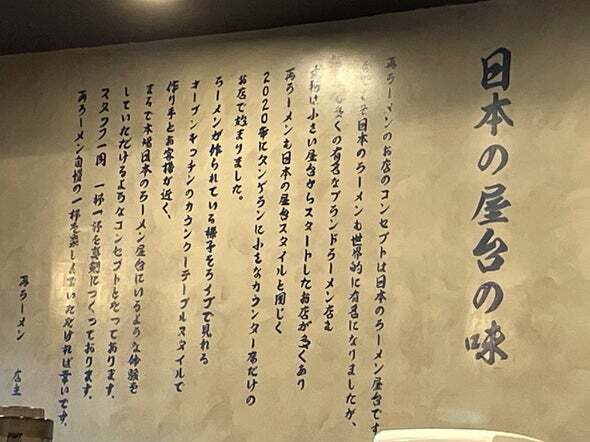 日本の屋台の味
再ラーメンのお店のコンセプトは日本のラーメン屋台です
こそ日本のラーメンも世界的に有名になりましたが、
多くの有名なブランドラーメン店も
最初は小さい屋台からスタートしたお店が多くあり
再ラーメンも日本の屋台スタイルと同じく
2020年にタンゲランに小さなカウンター席だけの
お店で始まりました。
ラーメンが作られている様子をライブで見れる
オープンキッチンのカウンターテーブルスタイルで
作り手とお客様が近く、
まるで本場日本のラーメン屋台にいるような体験を
していただけるようなコンセプトとなっております。
スタッフ一同 一杯一杯を真剣につくっております。
再ラーメン自慢の一杯を楽しんでいただければ幸いです。
再ラーメン 店主